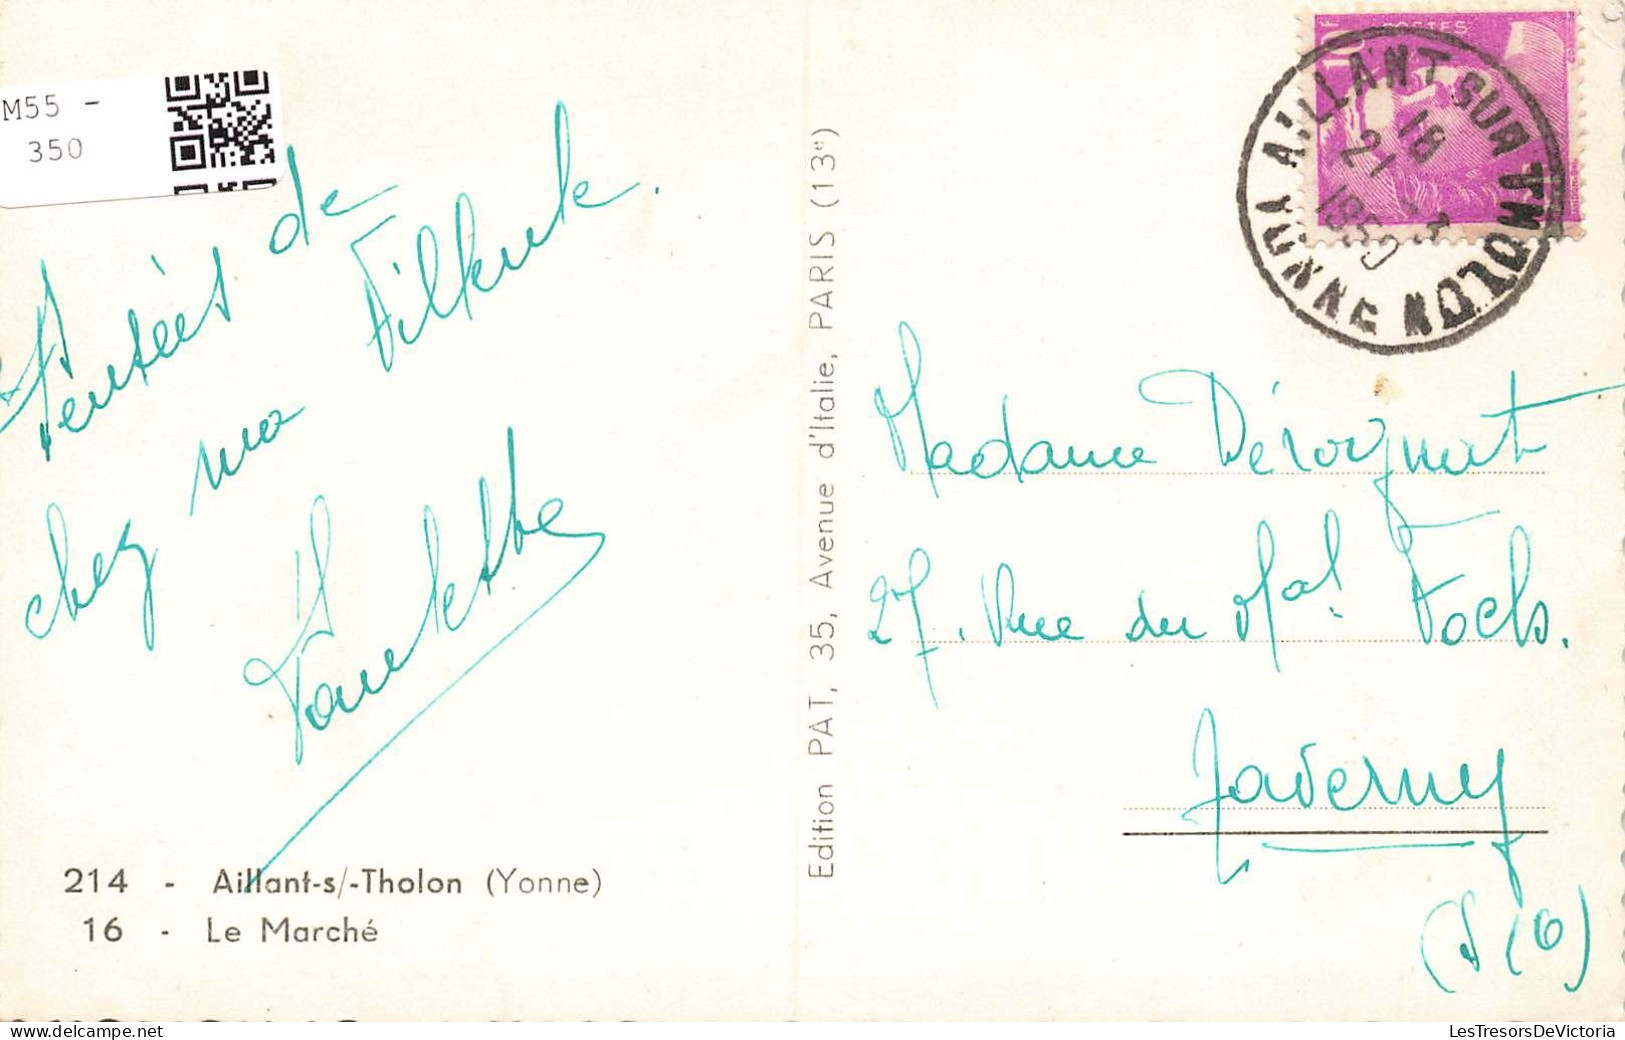 M55 -
350
Pensées de
chez ma
214 - Aillant-s/-Tholon (Yonne)
16 - Le Marché
Edition PAT, 35, Avenue d'Italie, PARIS (13e)
10F POSTES
AILLANT SUR THOLON
18
21 -3
1950
YONNE
Madame Dérognat
27. Rue du Mal. Foch.
Taverny
(S & O)
LesTresorsDeVictoria